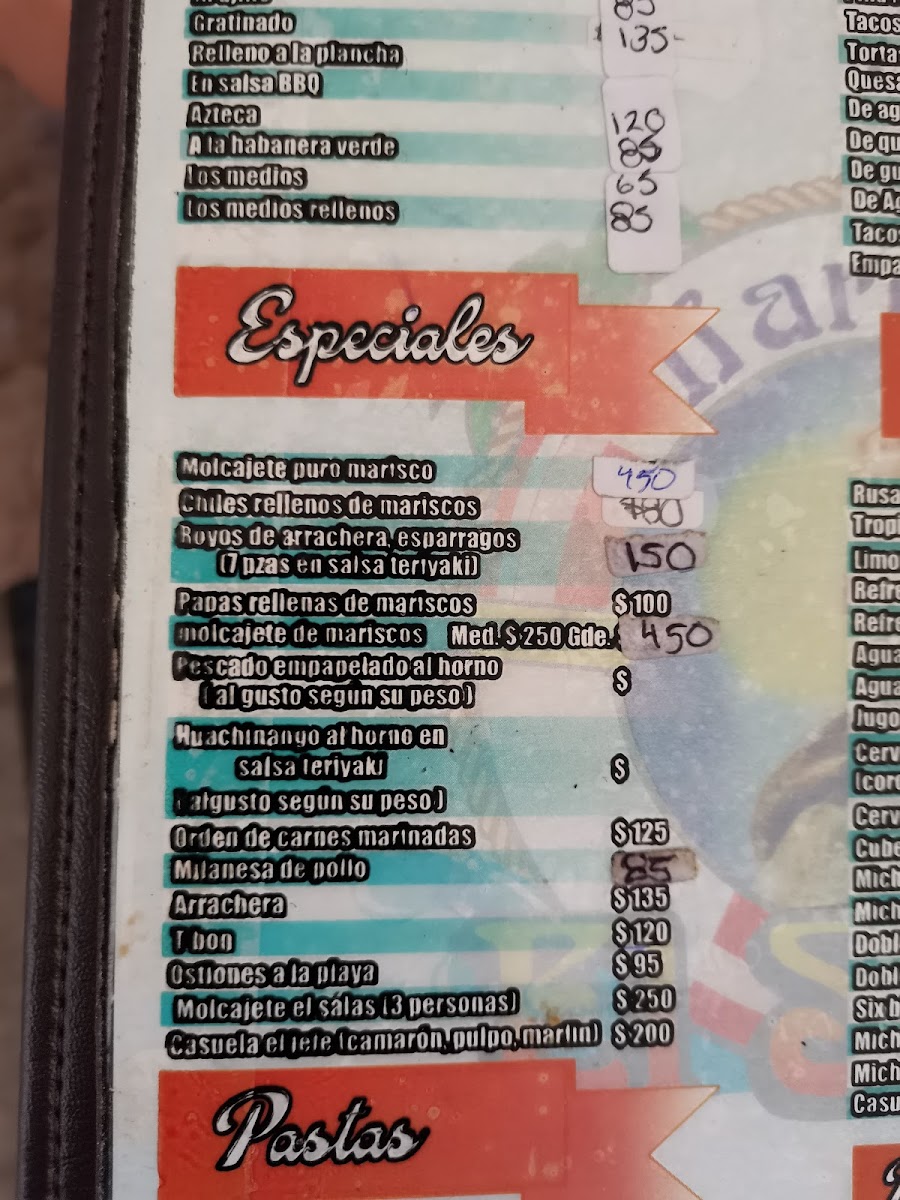 Gratinado
135-
Relleno a la plancha
En salsa BBQ
Azteca 120
A la habanera verde 85
Los medios 65
Los medios rellenos 85
Especiales
Molcajete puro marisco 450
Chiles rellenos de mariscos
Royos de arrachera, esparragos 150
(7 pzas en salsa teriyaki)
Papas rellenas de mariscos $100
molcajete de mariscos Med. $250 Gde. 450
Pescado empapelado al horno
( al gusto segun su peso ) $
Huachinango al horno en
salsa teriyaki $
( algusto segun su peso )
Orden de carnes marinadas $125
Milanesa de pollo 85
Arrachera $135
T bon $120
Ostiones a la playa $95
Molcajete el sálas (3 personas) $250
Casuela el jefe (camarón, pulpo, marlin) $200
Pastas
Tacos
Torta
Quesa
De ag
De qu
De gu
De Ag
Taco
Empa
Rusa
Tropi
Limo
Refre
Refre
Agua
Agua
Jugo
Cerv
(coro
Cerv
Cube
Mich
Mich
Dobl
Dobl
Six b
Mich
Mich
Casu